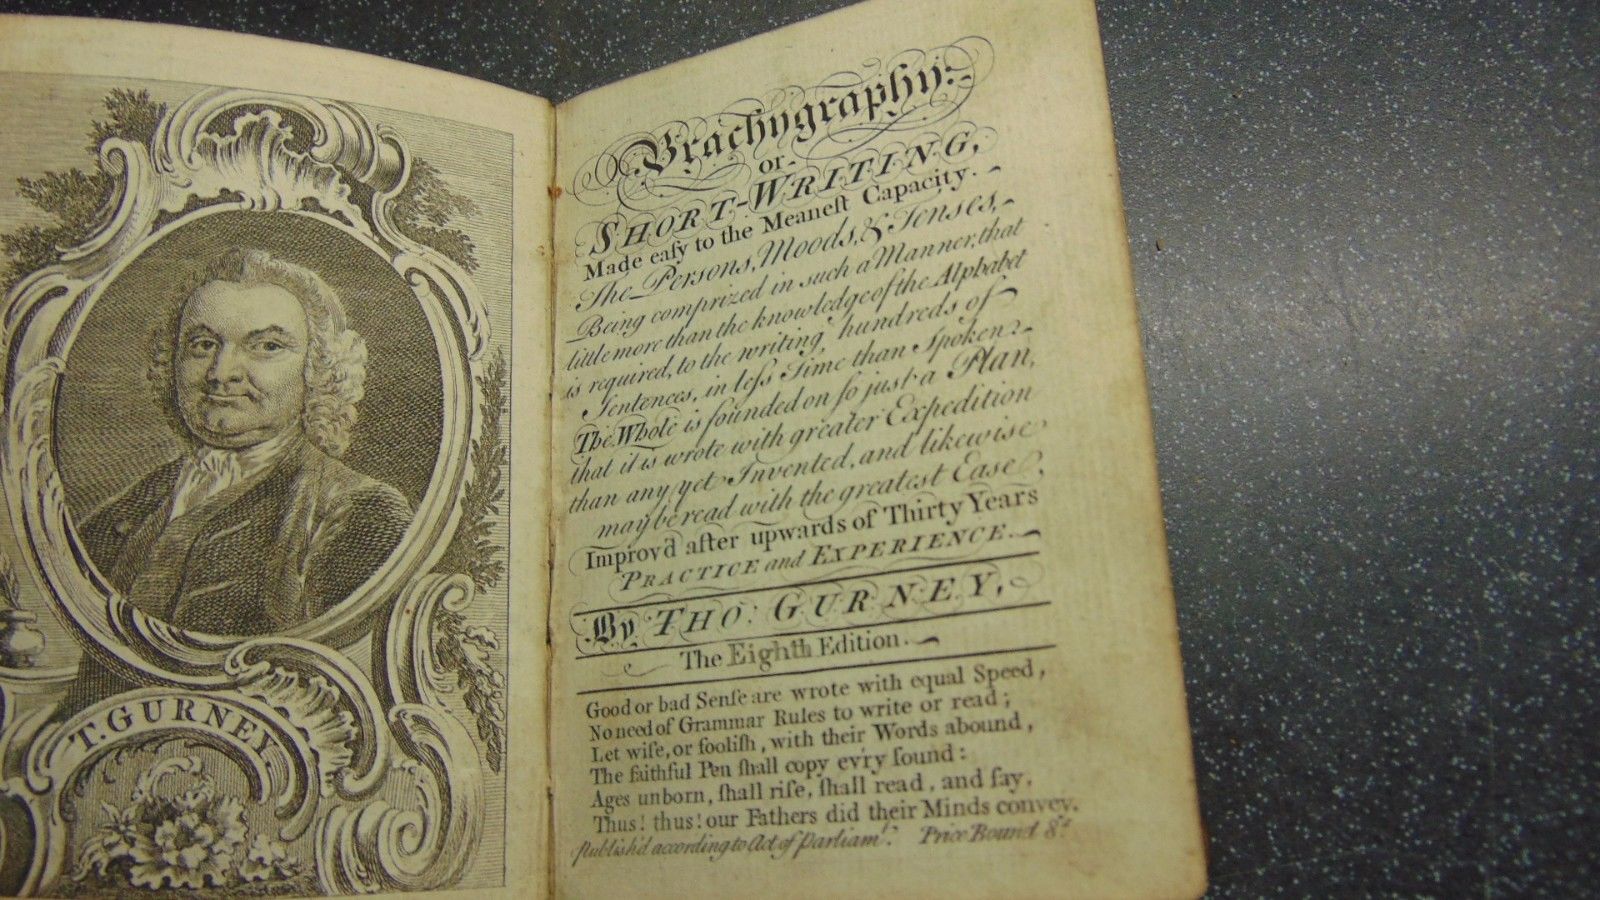 T. GURNEY.
Brachygraphy:
or
SHORT-WRITING,
Made eaſy to the Meaneſt Capacity.
The Persons, Moods, & Tenses,
Being comprized in such a Manner, that
little more than the knowledge of the Alphabet
is required, to the writing hundreds of
Sentences, in leſs Time than spoken:
The Whole is founded on ſo just a Plan,
that it is wrote with greater Expedition
than any yet Invented, and likewise
may be read with the greatest Ease.
Improv'd after upwards of Thirty Years
PRACTICE and EXPERIENCE.
By THO: GURNEY,
The Eighth Edition.
Good or bad Senſe are wrote with equal Speed,
No need of Grammar Rules to write or read;
Let wiſe, or fooliſh, with their Words abound,
The faithful Pen ſhall copy ev'ry ſound:
Ages unborn, ſhall riſe, ſhall read, and ſay,
Thus! thus! our Fathers did their Minds convey.
Publish'd according to Act of Parliamt. Price Bound 8s